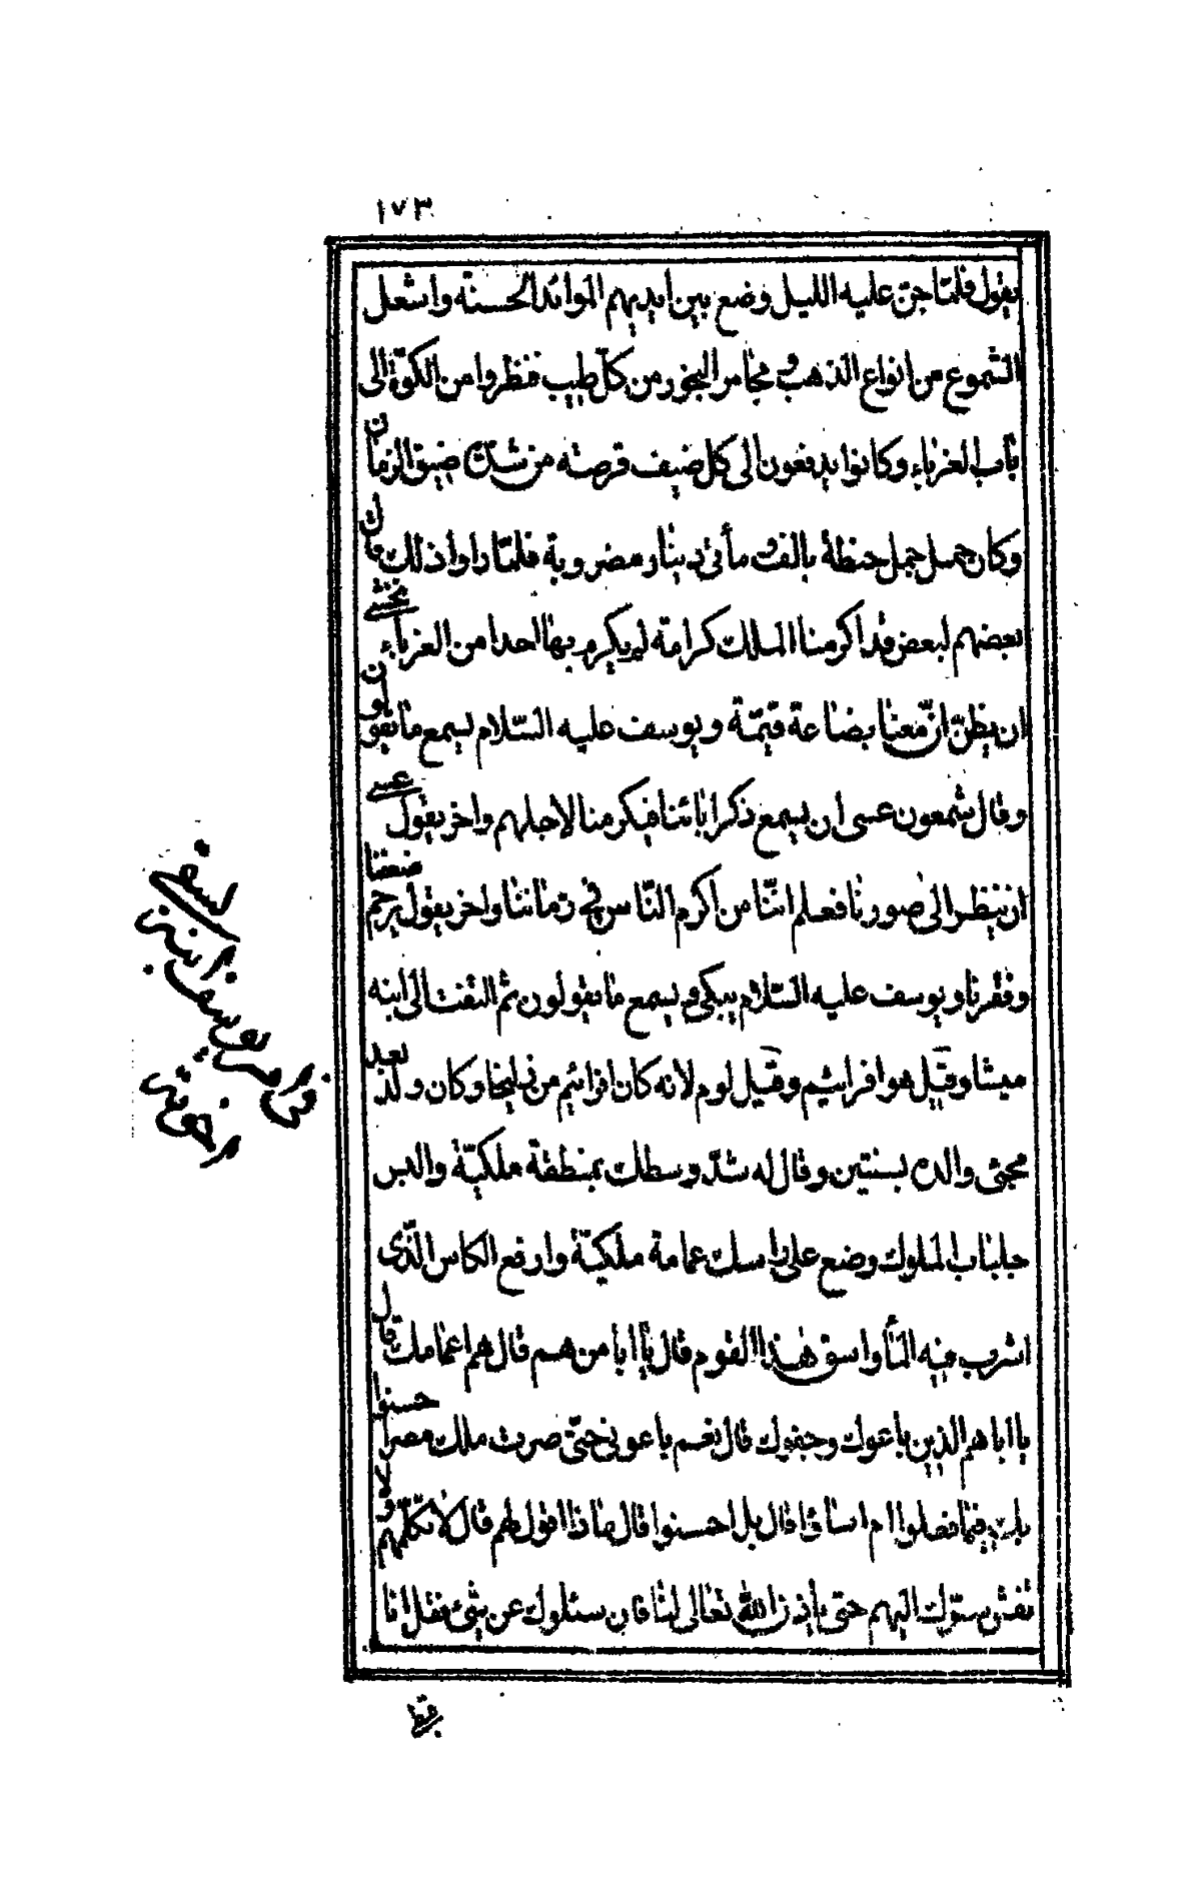 ١٧٣
يقول فلمّا جنّ عليه الليل وضع بين ايديهم الموائد الحسنة واشعل
الشموع من انواع الذهب ومجامر البخور من كلّ طيب فنظروا من الكوّة الى
باب الغرباء وكانوا يدفعون الى كل ضيف قرصته من شدّة ضيق الزمان
وكان حمل جمل حنطة بالف ومأتى دينار مضروبة فلمّا راوا ذلك قال
بعضهم لبعض قد اكرمنا الملك كرامة لم يكرم بها احدا من الغرباء نخشى
ان يظنّ انّ معنا بضاعة قيمّة ويوسف عليه السّلام يسمع ما يقولون
وقال شمعون عسى ان يسمع ذكر ابائنا فيكرمنا لاجلهم واخر يقول عسى
ان ينظر الى صورنا فعلم انّنا من اكرم النّاس فى زماننا واخر يقول يرحم ضعفنا
وفقرنا ويوسف عليه السّلام يبكى ويسمع ما يقولون ثم التفت الى ابنه
ميشا وقيل هو افرائيم وقيل لوم لانه كان افرائيم من زليخا وكان ولد بعد
مجئ والده بسنتين وقال له شدّ وسطك بمنطقة ملكيّة والبس
جلباب الملوك وضع على راسك عمامة ملكيّة وارفع الكاس الّذى
اشرب منه المأ واسق هذا القوم قال يا ابا من هم قال هم اعمامك قال
يا ابا هم الذين باعوك وجفوك قال نعم باعونى حتّى صرت ملك مصر احسنوا
بك فيما فعلوا ام اساؤا قال بل احسنوا قال ماذا اقول لهم قال لا تكلّمهم ولا
تفش سترك اليهم حتى يأذن الله تعالى لنا فان سئلوك عن شئ فقل انا
لسقى
امر يوسف ابنه
اخوته